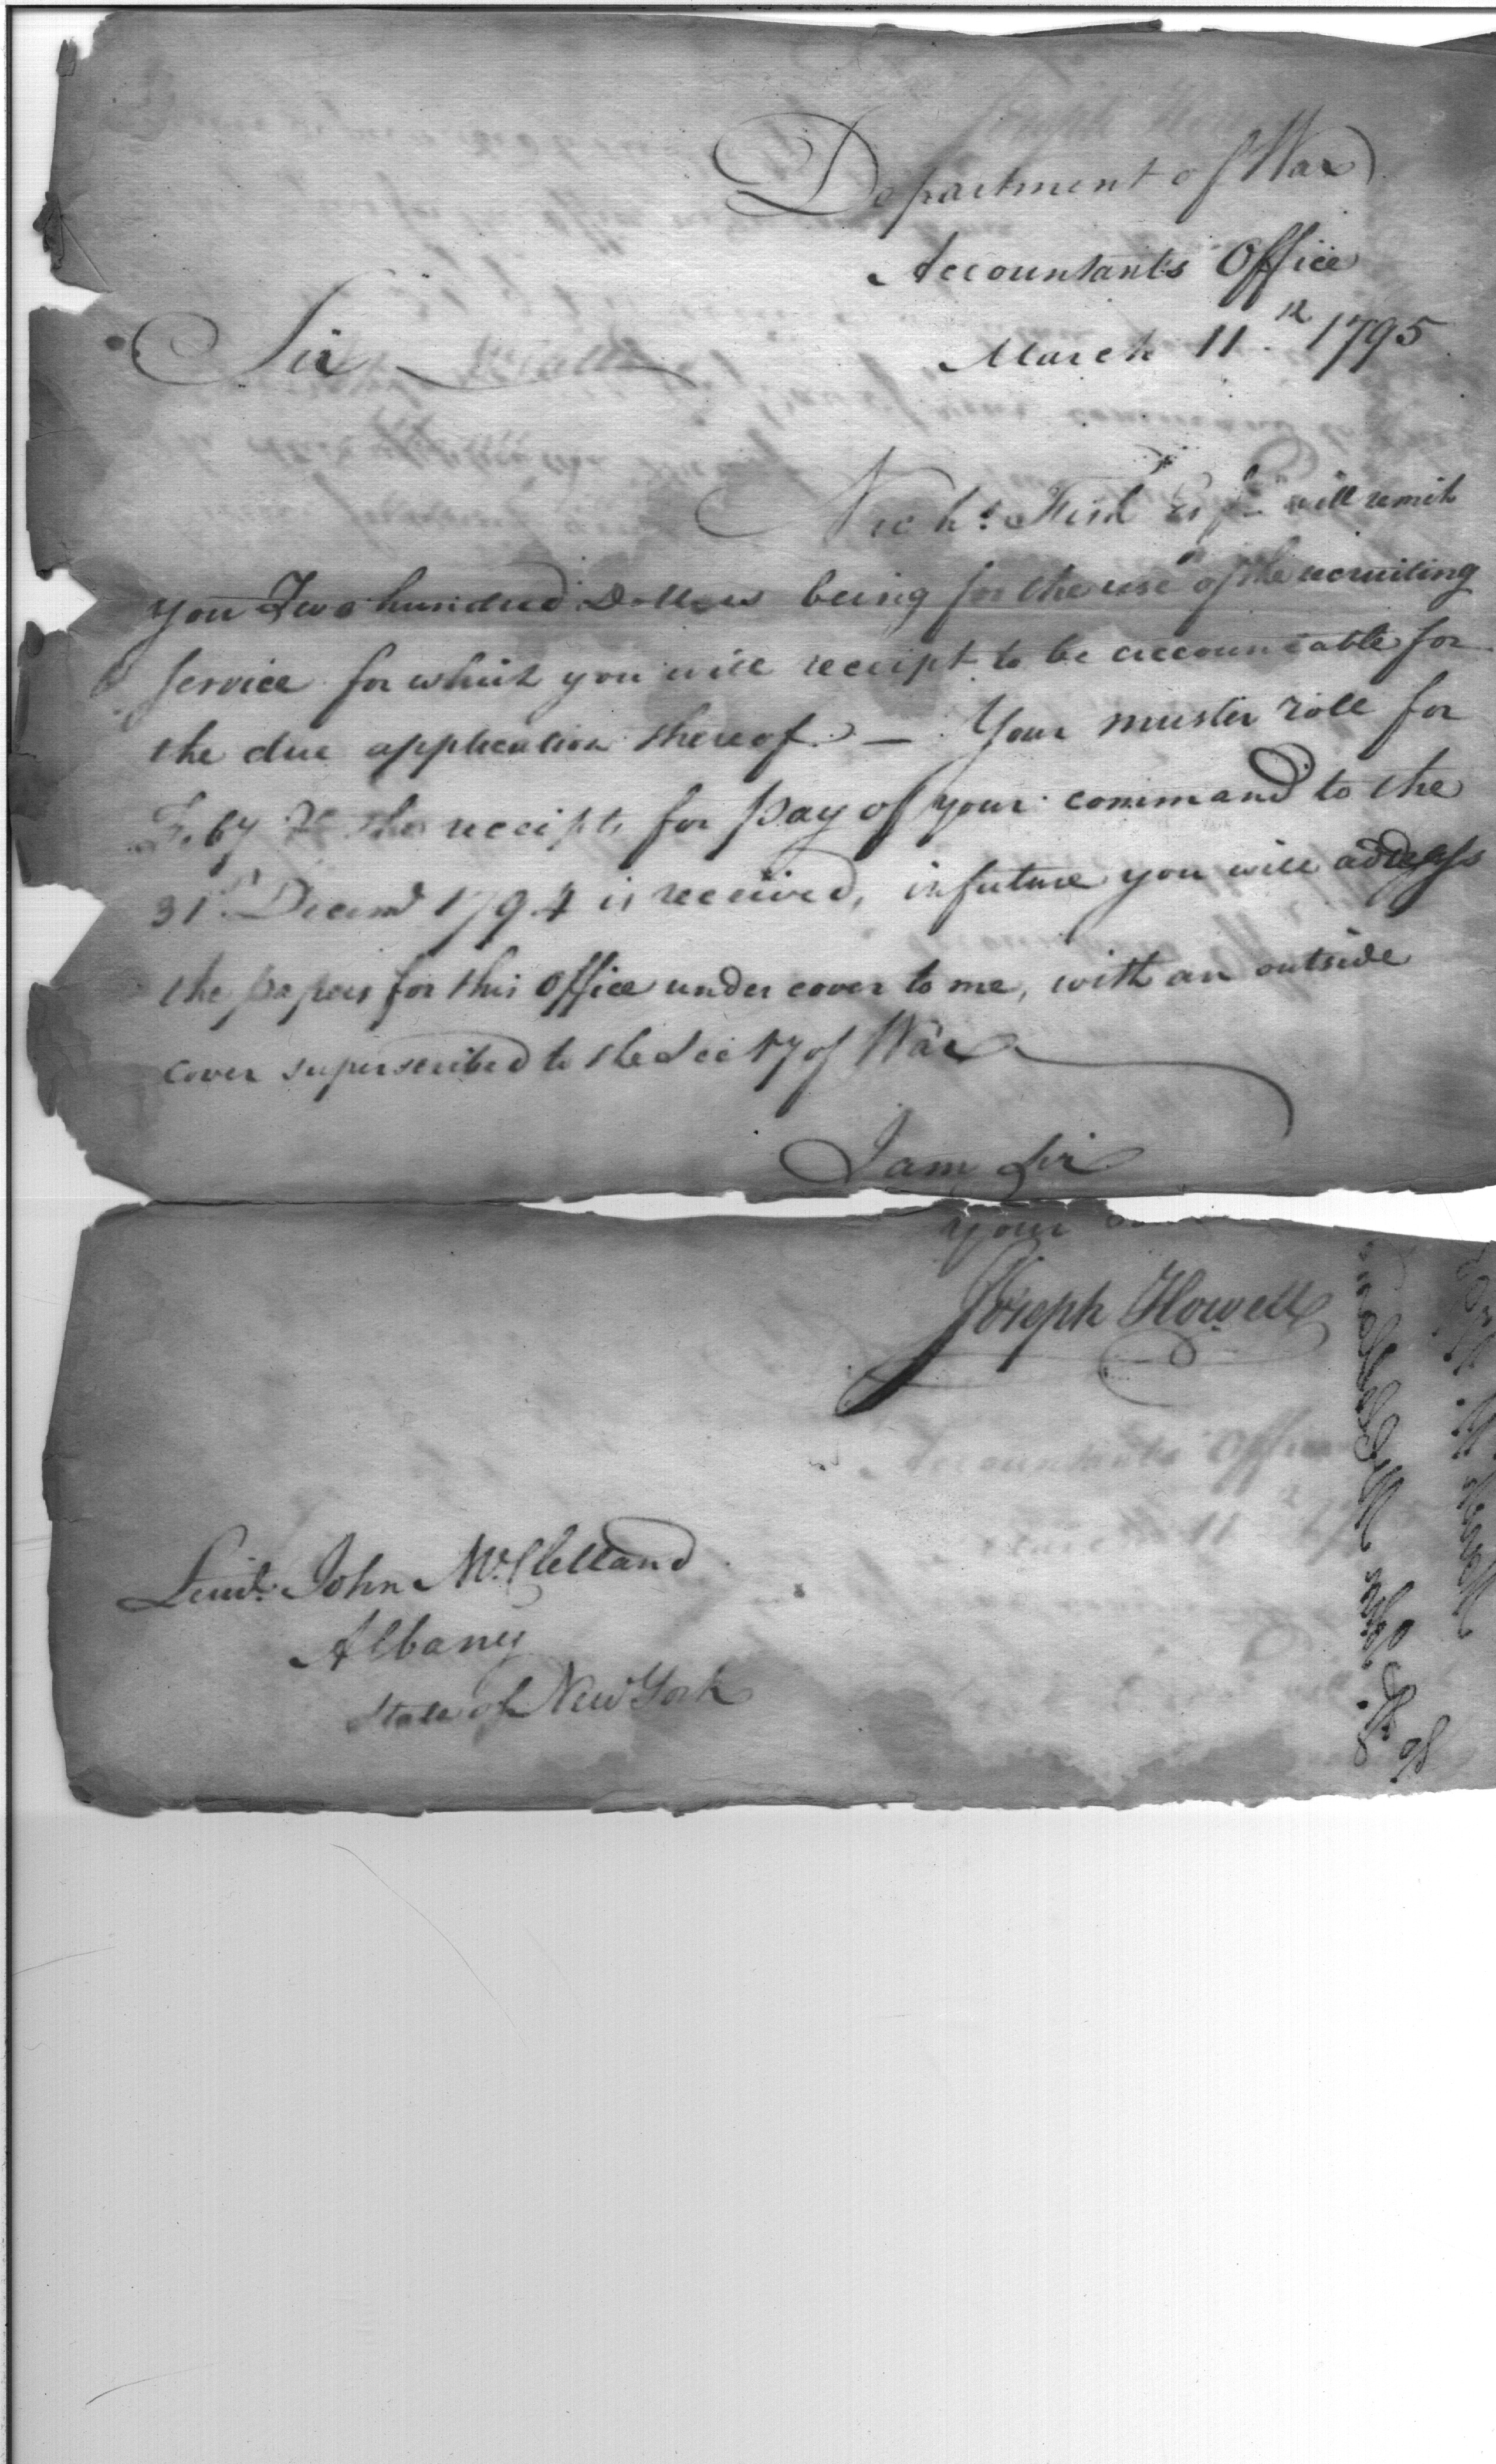 Department of War
Accountants Office
March 11th 1795
Sir
Nichs. Fish Esqr will remit
you Two hundred Dollars being for the use of the recruiting
service for which you will receipt to be accountable for
the due application thereof. — Your muster roll for
Feby & the receipts for pay of your command to the
31st. Decemr 1794 is received, in future you will address
the papers for this Office under cover to me, with an outside
cover superscribed to the Secty of War
I am Sir
your
Joseph Howell
Lieut. John McClelland
Albany
State of New York